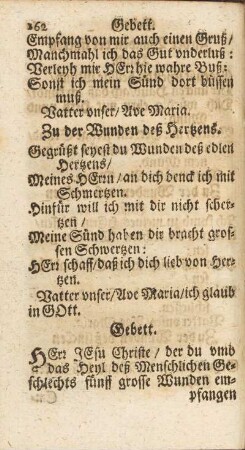 262 Gebett.
Empfang von mir auch einen Gruß/
Manchmahl ich das Gut vnderluß:
Verleyh mir HErr hie wahre Buß:
Sonst ich mein Sünd dort büssen
muß.
Vatter vnser/Ave Maria.
Zu der Wunden deß Hertzens.
Gegrüßt seyest du Wunden deß edlen
Hertzens/
Meines HErrn/an dich denck ich mit
Schmertzen.
Hinfür will ich mit dir nicht scher-
tzen/
Meine Sünd haben dir bracht gros-
sen Schwertzen:
HErr schaff/daß ich dich lieb von Her-
tzen.
Vatter vnser/Ave Maria/ich glaub
in GOtt.
Gebett.
HErr JEsu Christe/ der du vmb
das Heyl deß Menschlichen Ge-
schlechts fünff grosse Wunden em-
pfangen